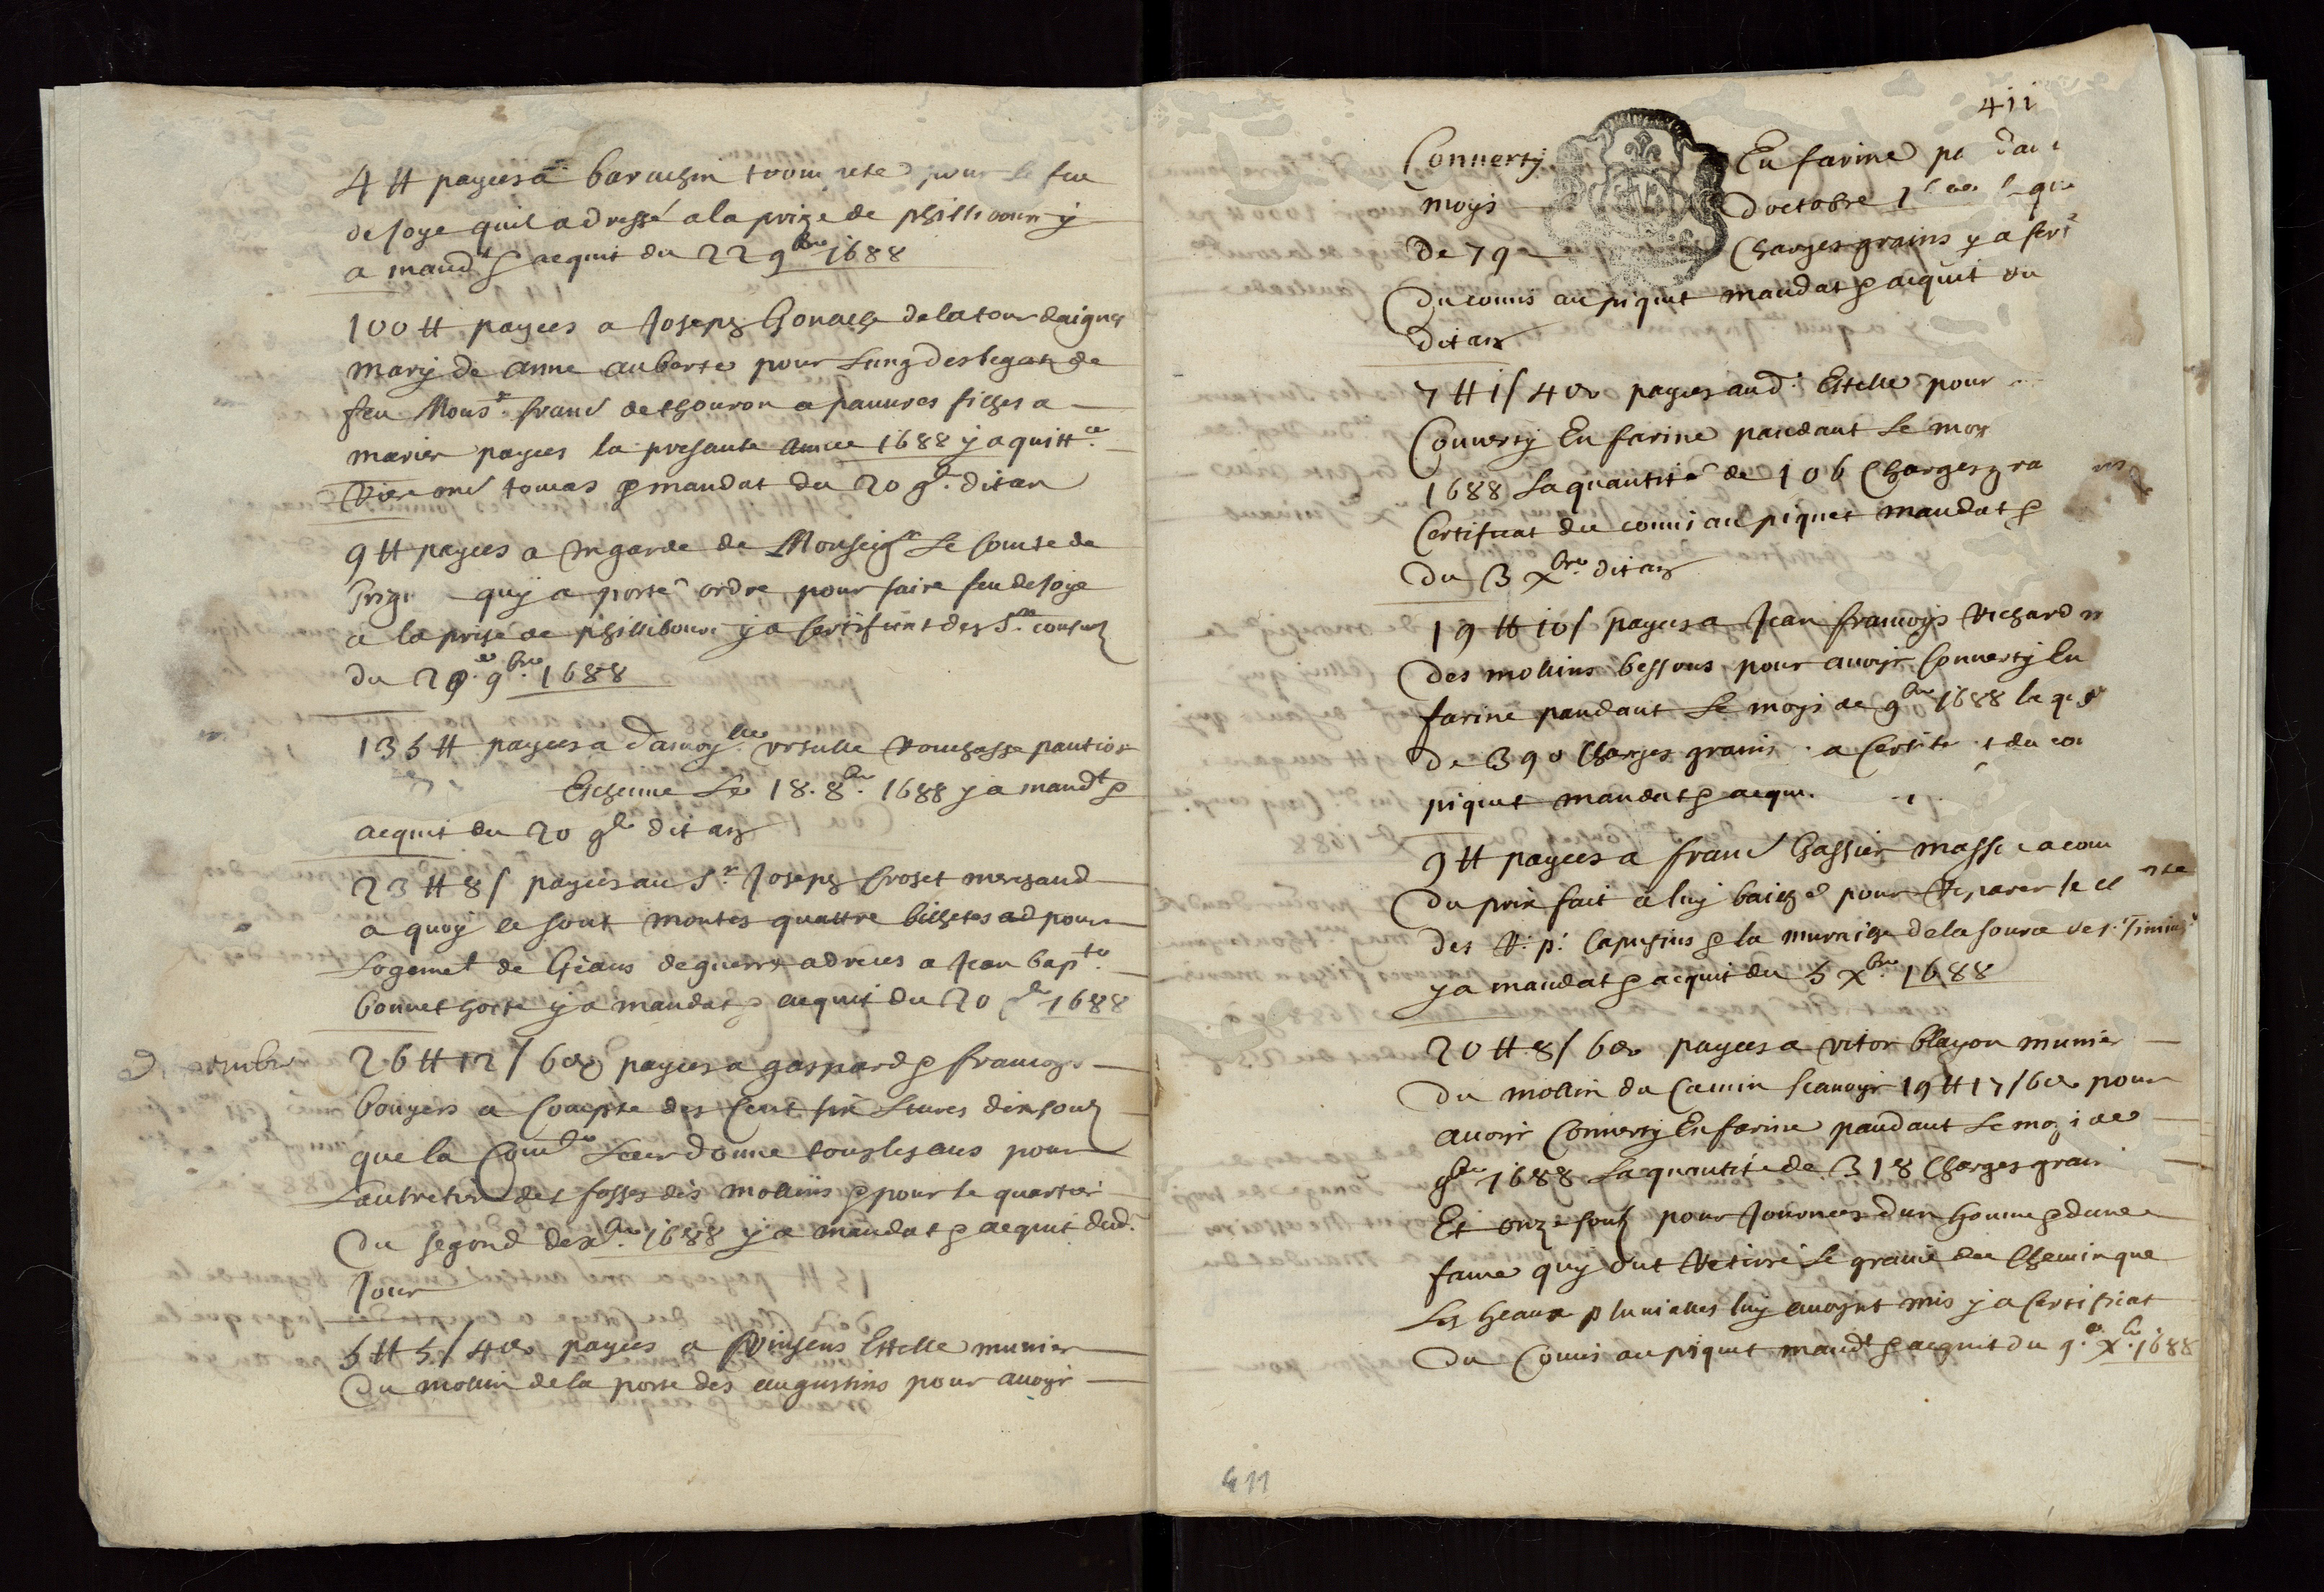 4 ₶ payees a barachin trompete pour le feu
de Joye quil a dressé a la prize de phillibourg y
a mand.t & acquit du 22 9bre 1688
100 ₶ payees a Joseph de la tour daigues
mary de anne auberte pour lung des legats de
feu Mons.r franc de thouron a pauures filhes a
marier payees la presante annee 1688 y a quitt.ce
tomas & mandat du 20 9.e dit an
9 ₶ payees a garde de Monseig.r Le Comte de
quy a porté ordre pour faire feu de Joye
a la prise de phillibourg y a Certificat des S.rs Consulz
du 9.bre 1688
135 ₶ payees a damoy.lle vrsulle pantion
Escheue Le 18. 8.bre 1688 y a mand.t &
acquit du 20 9bre dit an
23 ₶ 8 ſ payees au S.r Joseph Croset merchand
a quoy se sont montes quattre billetes pour
Logemet de Geans de guerre adrces a Jean bap.te
bonnet hoste y a mandat & acquit du 20 1688
26 ₶ 12 ſ 6 d payees a gaspard & francoys
bouyers a Compte des Cent six Liures dix soulz
que la Com.te Leur donne tous les ans pour
Lantretien des fosses des mollins & pour le quartier
Du segond dex.bre 1688 y a mandat & acquit dud.
Jour
5 ₶ 5 ſ 4 d payees a Vinsens Estelle munier
Du mollin de la porte des augustins pour auoyr
411
Conuerty En farine
moys doctobre
De 79 Charges grains y a
Du comis au piquet mandat & acquit du
dit an
7 ₶ 1 ſ 4 d payees aud. Estelle pour
Conuerty En farine pandant Le moy
1688 La quantité de 106 Charges gra
Certificat du comis au piquet mandat &
Du 3 X.bre dit an
19 ₶ 10 ſ payees a Jean francoys Richard
Des mollins bessons pour auoyr Conuerty En
farine pandant Le moys de 9bre 1688 la
De 390 Charges grains a du
piquet mandat & acqui
9 ₶ payees a franc Gassier a com
Du prix fait a luy bailhé pour Reparer le
des R. p. Capusins & la muraille de la source de
y a mandat & acquit du 5 X.bre 1688
20 ₶ 8 ſ 6 d payees a vitor blayon munier
Du mollin du Camin scauoyr 19 ₶ 17 ſ 6 d pour
auoyr Conuerty En farine pandant Le moys de
9bre 1688 La quantité de 318 Charges grain
Et onze soulz pour Journees dun homme & dune
fame quy ont Retiré Le grauie du Chemin que
Les heaux pluuialles luy auoynt mis y a Certificat
Du Comis au piquet mand.t & acquit du 9.e X.bre 1688
411